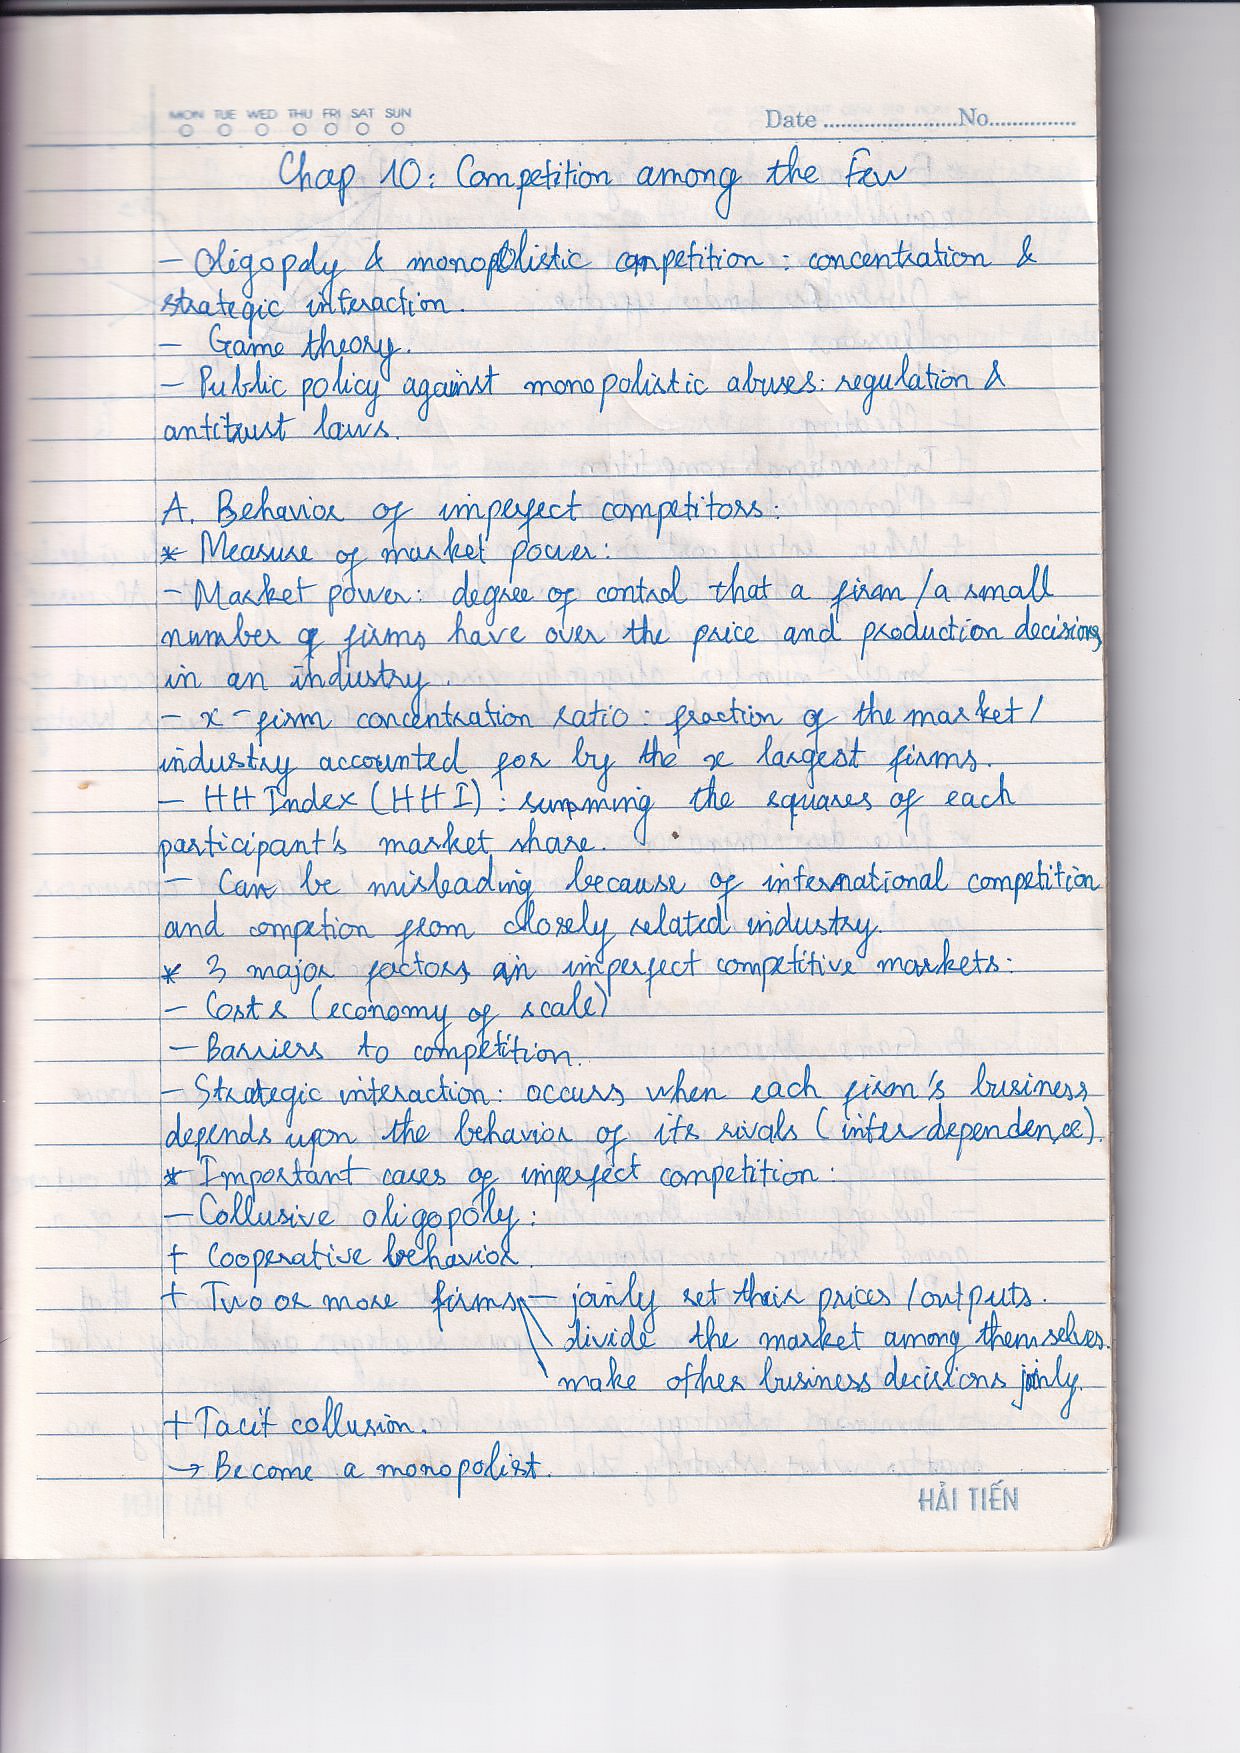 MON TUE WED THU FRI SAT SUN
Date ........................No...............
Chap 10: Competition among the Few
- Oligopoly & monopolistic competition: concentration &
strategic interaction.
- Game theory.
- Public policy against monopolistic abuses: regulation &
antitrust laws.
A. Behavior of imperfect competitors:
* Measure of market power:
- Market power: degree of control that a firm / a small
number of firms have over the price and production decisions
in an industry.
- x-firm concentration ratio: fraction of the market /
industry accounted for by the x largest firms.
- HH Index (HHI): summing the squares of each
participant's market share.
- Can be misleading because of international competition
and competion from closely related industry.
* 3 major factors in imperfect competitive markets:
- Costs (economy of scale)
- Barriers to competition.
- Strategic interaction: occurs when each firm's business
depends upon the behavior of its rivals (interdependence).
* Important cases of imperfect competition:
- Collusive oligopoly:
+ Cooperative behavior.
+ Two or more firms - joinly set their prices / outputs.
divide the market among themselves.
make other business decisions joinly.
+ Tacit collusion.
→ Become a monopolist.
HẢI TIẾN